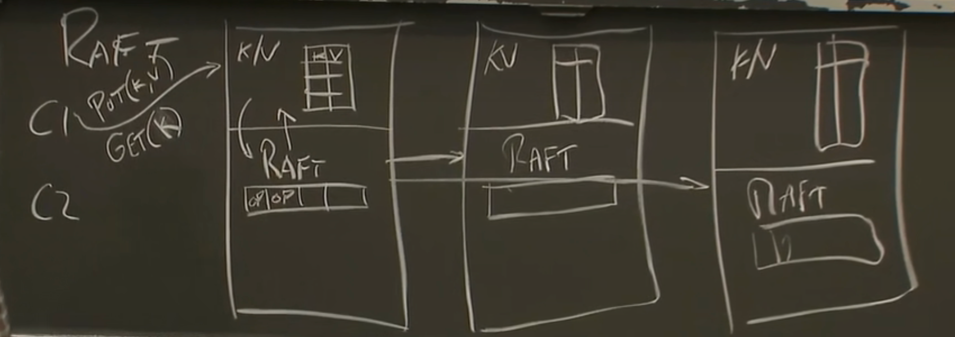 RAFT
C1 PUT(K,V)
GET(K)
C2
K/V
K V
RAFT
OP OP
KV
RAFT
K/V
RAFT